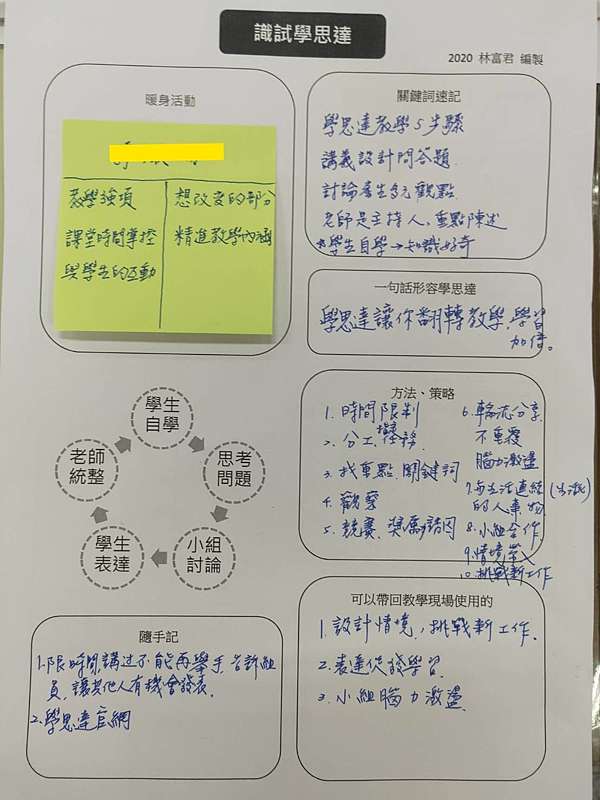 識試學思達
2020 林富君 編製
暖身活動
教學強項
課堂時間掌控
與學生的互動
想改變的部分
精進教學內涵
關鍵詞速記
學思達教學5步驟
講義設計問答題
討論產生多元觀點
老師是主持人、重點陳述
學生自學→知識好奇
一句話形容學思達
學思達讓你翻轉教學,學習
加倍。
學生
自學
思考
問題
小組
討論
學生
表達
老師
統整
方法、策略
1. 時間限制
2. 分工
3. 找重點、關鍵詞
4. 觀察
5. 競賽、獎勵誘因
6. 輪流分享
不重覆
腦力激盪
7. 與生活連結
的人事物
8. 小組合作
9. 情境帶入
10. 挑戰新工作
隨手記
1. 限時間,講過不能再舉手,告訴組
員,讓其他人有機會發表.
2. 學思達官網
可以帶回教學現場使用的
1. 設計情境,挑戰新工作.
2. 表達從錢學習.
3. 小組腦力激盪.